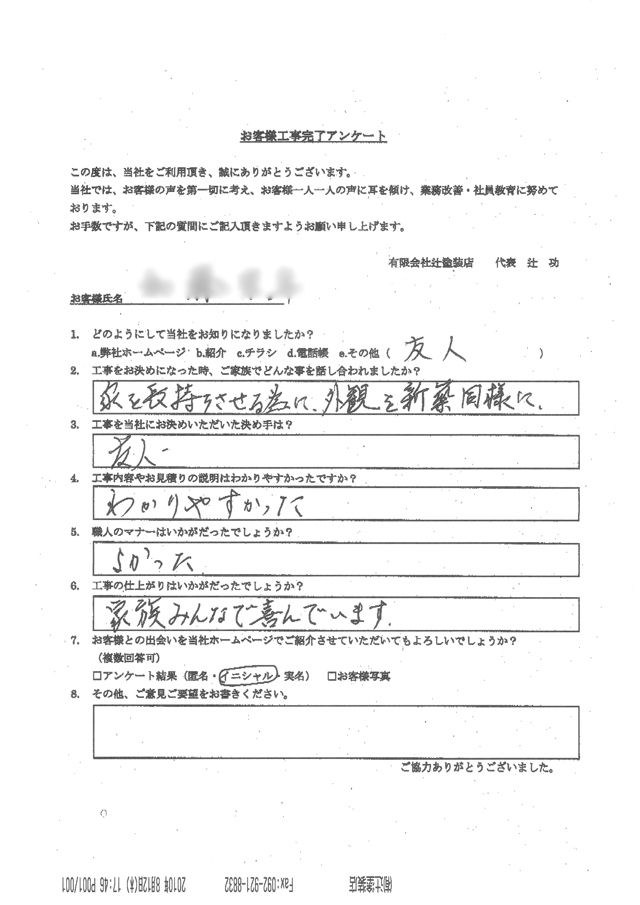 お客様工事完了アンケート
この度は、当社をご利用頂き、誠にありがとうございます。
当社では、お客様の声を第一切に考え、お客様一人一人の声に耳を傾け、業務改善・社員教育に努めて
おります。
お手数ですが、下記の質問にご記入頂きますようお願い申し上げます。
有限会社辻塗装店 代表 辻 功
お客様氏名
1. どのようにして当社をお知りになりましたか?
a.弊社ホームページ b.紹介 c.チラシ d.電話帳 e.その他 ( 友人 )
2. 工事をお決めになった時、ご家族でどんな事を話し合われましたか?
家を長持ちさせる為に、外観を新築同様に、
3. 工事を当社にお決めいただいた決め手は?
友人
4. 工事内容やお見積りの説明はわかりやすかったですか?
わかりやすかった
5. 職人のマナーはいかがだったでしょうか?
よかった
6. 工事の仕上がりはいかがだったでしょうか?
家族みんなで喜んでいます.
7. お客様との出会いを当社ホームページでご紹介させていただいてもよろしいでしょうか?
(複数回答可)
□アンケート結果 (匿名・イニシャル・実名) □お客様写真
8. その他、ご意見ご要望をお書きください。
ご協力ありがとうございました。
㈲辻塗装店 Fax:092-921-8832 2010年 8月12日(木) 17:46 P001/001